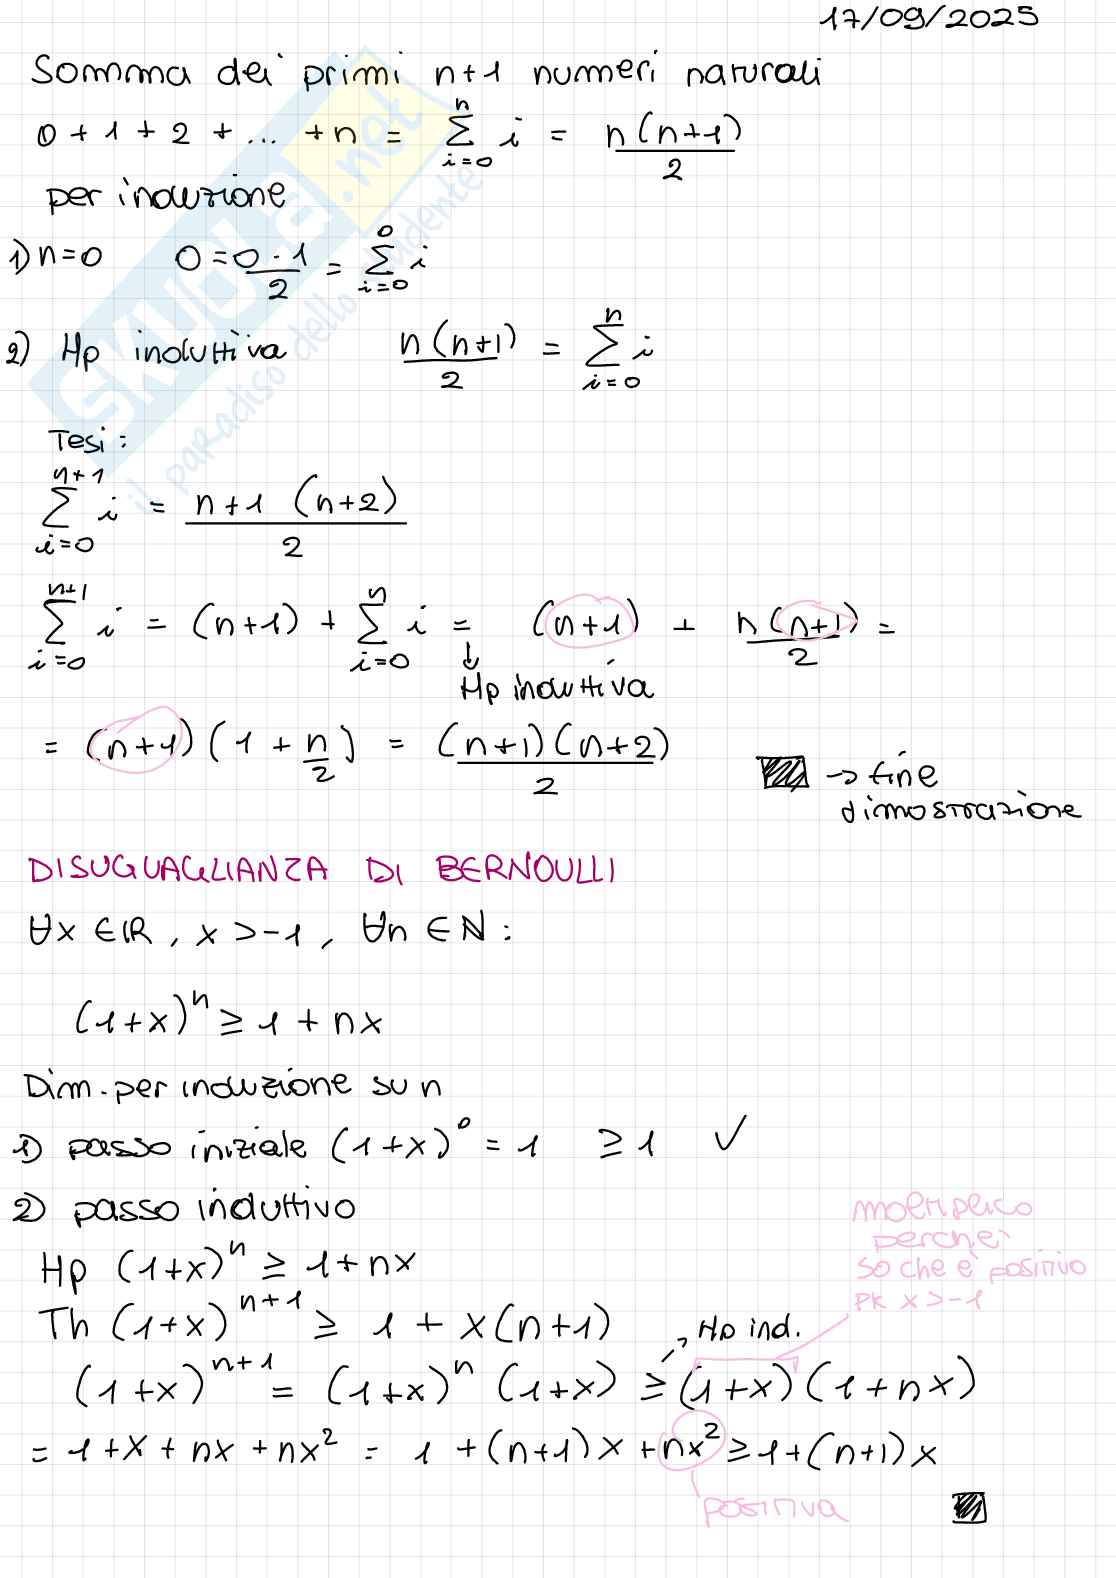 17/09/2025
Somma dei primi n+1 numeri naturali
0 + 1 + 2 + ... + n = \sum_{i=0}^{n} i = \frac{n(n+1)}{2}
per induzione
1) n=0 0 = \frac{0 \cdot 1}{2} = \sum_{i=0}^{0} i
2) Hp induttiva \frac{n(n+1)}{2} = \sum_{i=0}^{n} i
Tesi:
\sum_{i=0}^{n+1} i = \frac{n+1 (n+2)}{2}
\sum_{i=0}^{n+1} i = (n+1) + \sum_{i=0}^{n} i = (n+1) + \frac{n(n+1)}{2} =
↓
Hp induttiva
= (n+1) (1 + \frac{n}{2}) = \frac{(n+1)(n+2)}{2}
→ fine
dimostrazione
DISUGUAGLIANZA DI BERNOULLI
∀x ∈ ℝ, x > -1, ∀n ∈ ℕ:
(1+x)^n ≥ 1 + nx
Dim. per induzione su n
1) passo iniziale (1+x)^0 = 1 ≥ 1 ✓
2) passo induttivo
moltiplico
perche'
so che e' positivo
pk x > -1
Hp (1+x)^n ≥ 1 + nx
Th (1+x)^{n+1} ≥ 1 + x(n+1)
Hp ind.
(1+x)^{n+1} = (1+x)^n (1+x) ≥ (1+x)(1+nx)
= 1 + x + nx + nx^2 = 1 + (n+1)x + nx^2 ≥ 1 + (n+1)x
positiva
SKUOLA.net
il paradiso dello studente